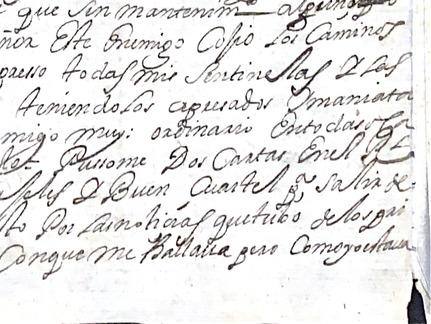 que sin mantenim algunos
ñor Este Enemigo Cojio Los Caminos
presso todas mis sentinelas Y Las
teniendolos apresados Y maniata
migo muy: ordinario Entodas
Pussome Dos Cartas Enel
Y Buen Cuartel pª salir de
to Por las noticias quetubo delos pri
Conque me hallava pero Comoyoestava